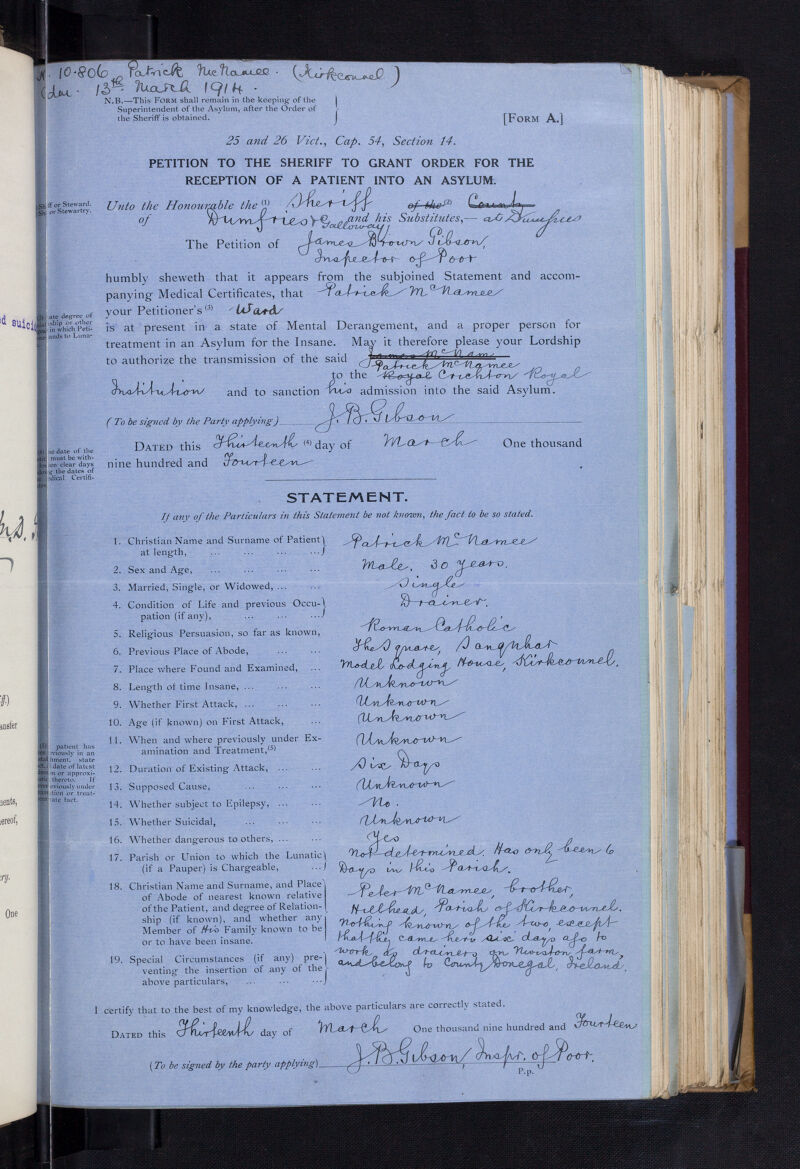 N. 10.806 Patrick McNamee. (Kirkconnel)
13th March 1914.
N.B.—This Form shall remain in the keeping of the
Superintendent of the Asylum, after the Order of
the Sheriff is obtained.
[Form A.]
25 and 26 Vict., Cap. 54, Section 14.
PETITION TO THE SHERIFF TO GRANT ORDER FOR THE
RECEPTION OF A PATIENT INTO AN ASYLUM.
ff or Steward.
or Stewartry.
Unto the Honourable the (1) Sheriff of the (2) County
of Dumfries & Galloway and his Substitutes,— at Dumfries
The Petition of James Brown Gibson,
Inspector of Poor
humbly sheweth that it appears from the subjoined Statement and accom-
panying Medical Certificates, that Patrick McNamee
your Petitioner's (3) Ward
ate degree of
ship or other
in which Peti-
ands to Luna-
is at present in a state of Mental Derangement, and a proper person for
treatment in an Asylum for the Insane. May it therefore please your Lordship
to authorize the transmission of the said James McNam
Patrick McNamee
to the Royal Crichton Royal
Institution and to sanction his admission into the said Asylum.
(To be signed by the Party applying) J. B. Gibson
he date of the
must be with-
en clear days
g the dates of
edical Certifi-
Dated this Thirteenth (4) day of March One thousand
nine hundred and Fourteen
STATEMENT.
If any of the Particulars in this Statement be not known, the fact to be so stated.
1. Christian Name and Surname of Patient
at length, ... Patrick McNamee
2. Sex and Age, ... Male, 30 years.
3. Married, Single, or Widowed, ... Single
4. Condition of Life and previous Occu-
pation (if any), ... Drainer.
5. Religious Persuasion, so far as known, Roman Catholic
6. Previous Place of Abode, ... The Square, Sanquhar
7. Place where Found and Examined, ... Model Lodging House, Kirkconnel.
8. Length of time Insane, ... Unknown
9. Whether First Attack, ... Unknown
10. Age (if known) on First Attack, ... Unknown
11. When and where previously under Ex-
amination and Treatment,(5) Unknown
patient has
eviously in an
ment, state
date of latest
n or approxi-
thereto. If
eviously under
tion or treat-
ate fact.
12. Duration of Existing Attack, ... Six Days
13. Supposed Cause, ... Unknown
14. Whether subject to Epilepsy, ... No.
15. Whether Suicidal, ... Unknown
16. Whether dangerous to others, ... Yes
17. Parish or Union to which the Lunatic
(if a Pauper) is Chargeable, ...
Not determined. Has only been 6
Days in this Parish.
18. Christian Name and Surname, and Place
of Abode of nearest known relative
of the Patient, and degree of Relation-
ship (if known), and whether any
Member of His Family known to be
or to have been insane.
Peter McNamee, brother,
Hillhead, Parish of Kirkconnel.
Nothing known of the two, except
that they came here six days ago to
19. Special Circumstances (if any) pre-
venting the insertion of any of the
above particulars, ...
work as drainers on Niviston farm,
and belong to County Donegal, Ireland.
I certify that to the best of my knowledge, the above particulars are correctly stated.
Dated this Thirteenth day of March One thousand nine hundred and Fourteen
(To be signed by the party applying) J. B. Gibson, Inspr. of Poor.
P.p.
d suici
ff.)
ansfer
ments,
ereof,
ry.
One